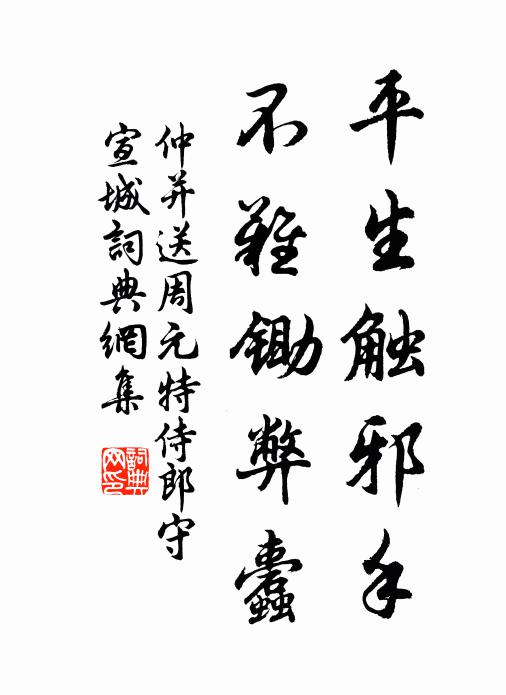 平生触邪手
不难锄弊蠹
仲并送周元特侍郎守
宣城詞典網集
詞典网印